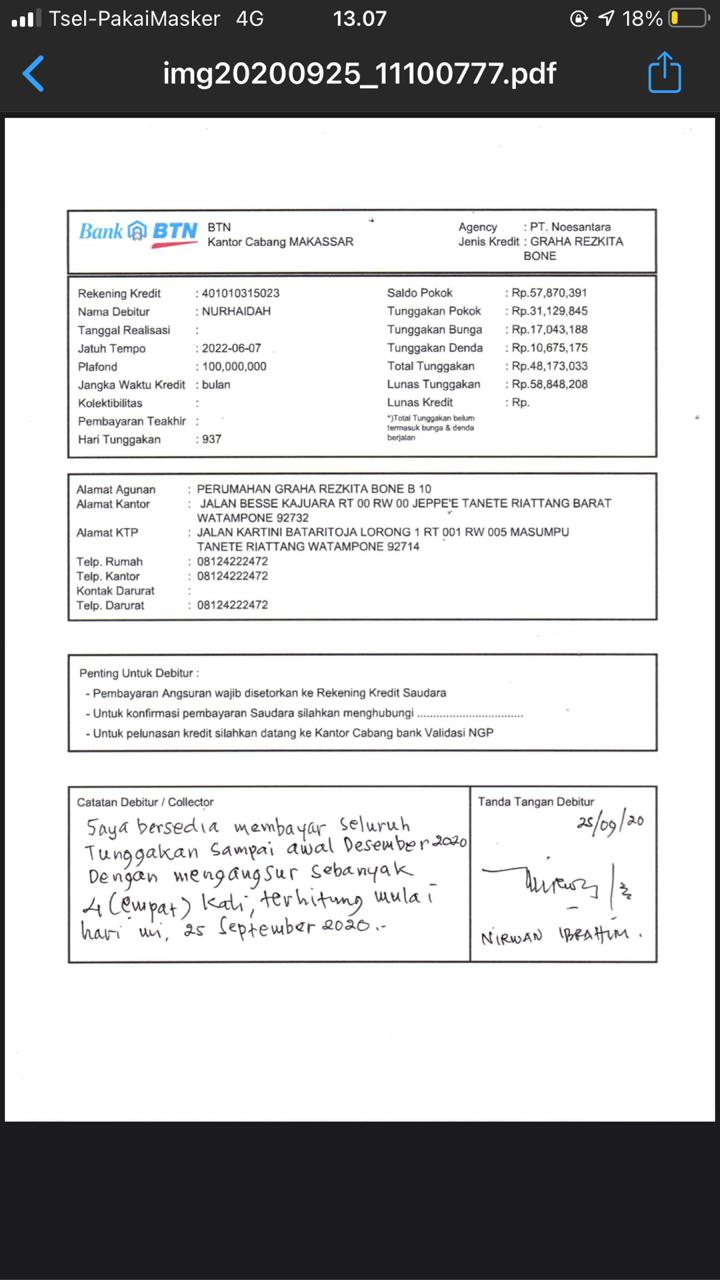 Tsel-PakaiMasker 4G 13.07 18%
img20200925_11100777.pdf
Bank BTN
BTN
Kantor Cabang MAKASSAR
Agency : PT. Noesantara
Jenis Kredit : GRAHA REZKITA
BONE
Rekening Kredit : 401010315023
Nama Debitur : NURHAIDAH
Tanggal Realisasi :
Jatuh Tempo : 2022-06-07
Plafond : 100,000,000
Jangka Waktu Kredit : bulan
Kolektibilitas :
Pembayaran Teakhir :
Hari Tunggakan : 937
Saldo Pokok : Rp.57,870,391
Tunggakan Pokok : Rp.31,129,845
Tunggakan Bunga : Rp.17,043,188
Tunggakan Denda : Rp.10,675,175
Total Tunggakan : Rp.48,173,033
Lunas Tunggakan : Rp.58,848,208
Lunas Kredit : Rp.
*)Total Tunggakan belum
termasuk bunga & denda
berjalan
Alamat Agunan : PERUMAHAN GRAHA REZKITA BONE B 10
Alamat Kantor : JALAN BESSE KAJUARA RT 00 RW 00 JEPPE'E TANETE RIATTANG BARAT
WATAMPONE 92732
Alamat KTP : JALAN KARTINI BATARITOJA LORONG 1 RT 001 RW 005 MASUMPU
TANETE RIATTANG WATAMPONE 92714
Telp. Rumah : 08124222472
Telp. Kantor : 08124222472
Kontak Darurat :
Telp. Darurat : 08124222472
Penting Untuk Debitur :
- Pembayaran Angsuran wajib disetorkan ke Rekening Kredit Saudara
- Untuk konfirmasi pembayaran Saudara silahkan menghubungi ................................
- Untuk pelunasan kredit silahkan datang ke Kantor Cabang bank Validasi NGP
Catatan Debitur / Collector
Saya bersedia membayar seluruh
Tunggakan sampai awal Desember 2020
Dengan mengangsur sebanyak
4 (empat) kali, terhitung mulai
hari ini, 25 September 2020.-
Tanda Tangan Debitur
25/09/20
NIRWAN IBRAHIM.